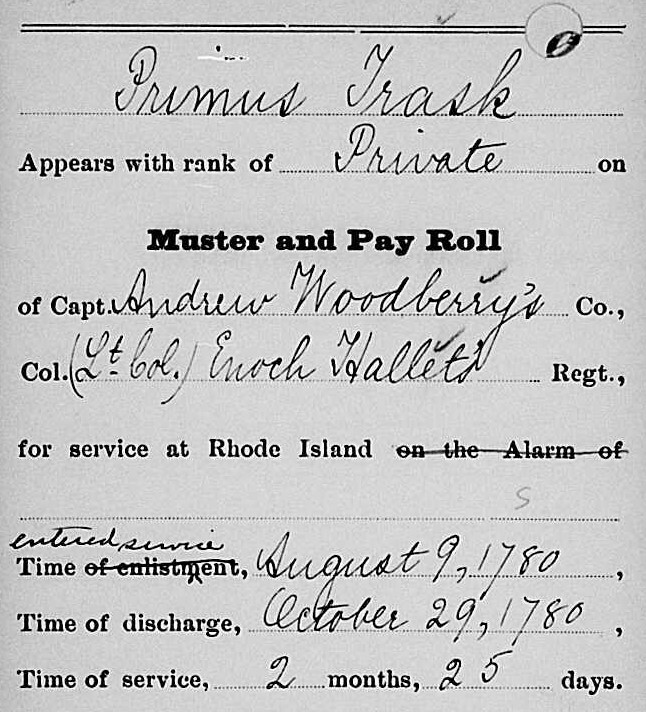 Primus Trask
Appears with rank of Private on
Muster and Pay Roll
of Capt. Andrew Woodberry's Co.,
Col. (Lt. Col.) Enoch Hallet's Regt.,
for service at Rhode Island on the Alarm of
S
entered service
Time of enlistment, August 9, 1780,
Time of discharge, October 29, 1780,
Time of service, 2 months, 25 days.